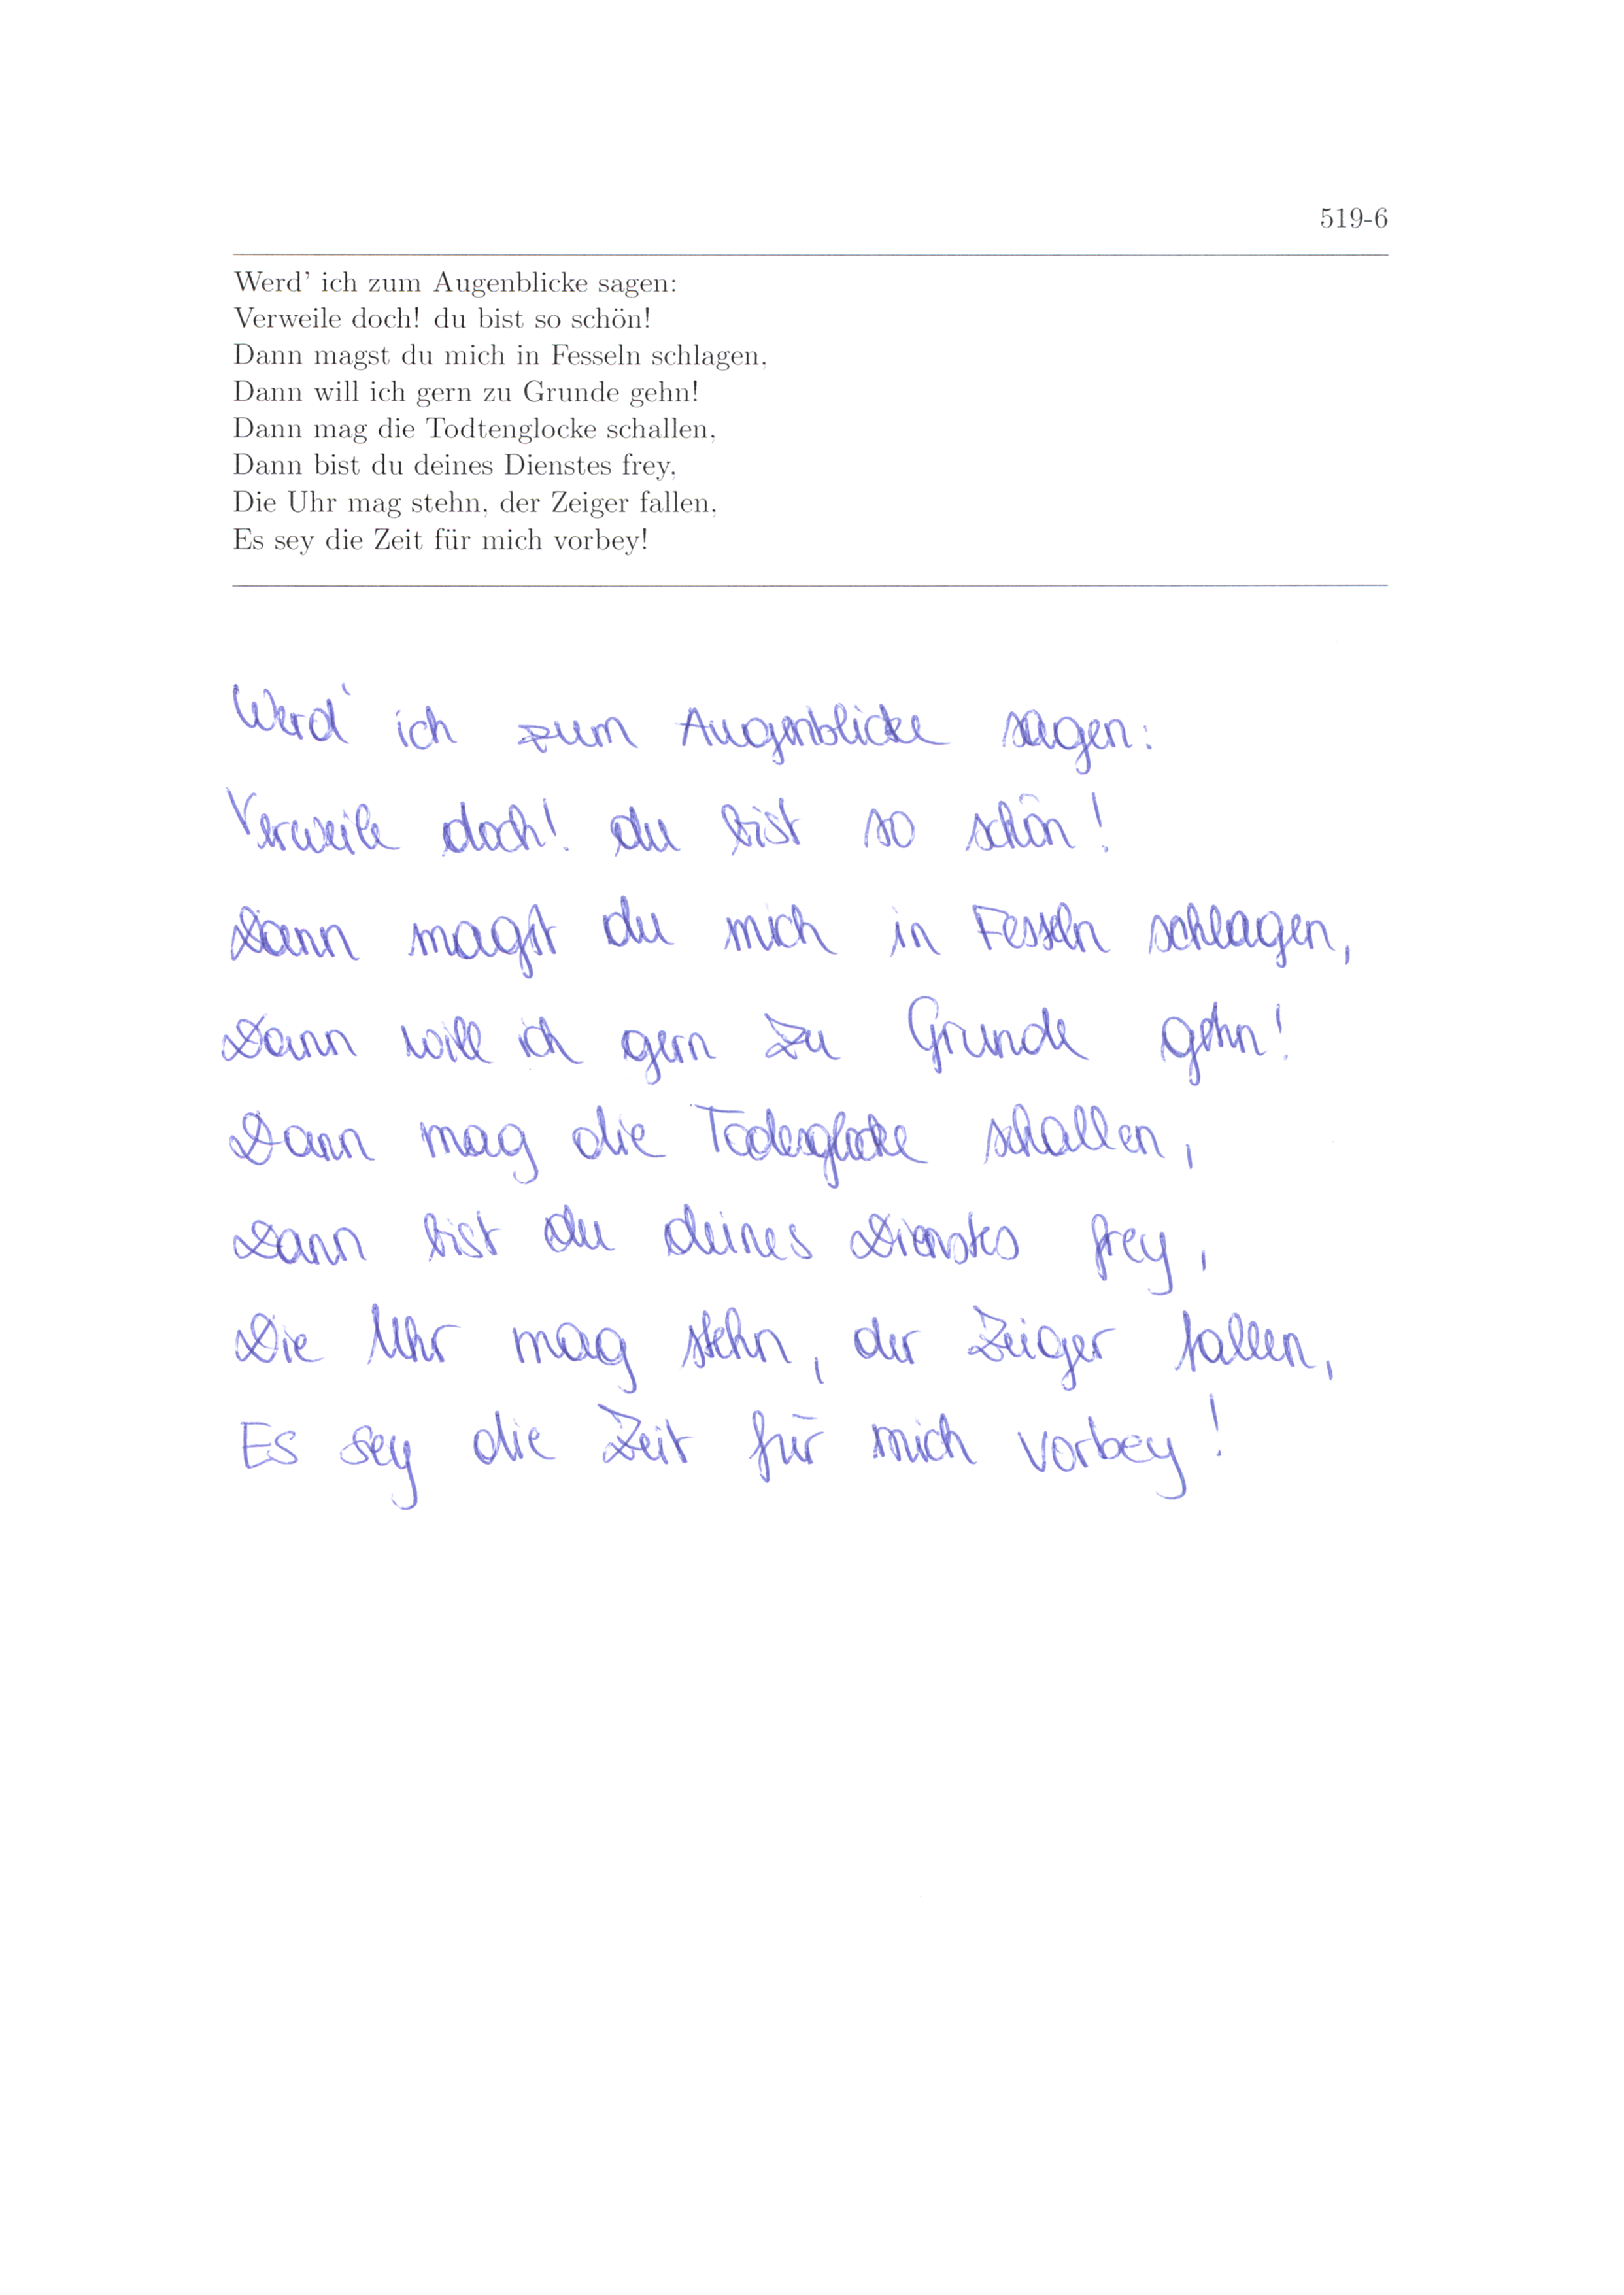 519-6
Werd' ich zum Augenblicke sagen:
Verweile doch! du bist so schön!
Dann magst du mich in Fesseln schlagen,
Dann will ich gern zu Grunde gehn!
Dann mag die Todtenglocke schallen,
Dann bist du deines Dienstes frey,
Die Uhr mag stehn, der Zeiger fallen,
Es sey die Zeit für mich vorbey!
Werd' ich zum Augenblicke sagen:
Verweile doch! du bist so schön!
Dann magst du mich in Fesseln schlagen,
Dann will ich gern zu Grunde gehn!
Dann mag die Todesglocke schallen,
Dann bist du deines Dienstes frey,
Die Uhr mag stehn, der Zeiger fallen,
Es sey die Zeit für mich vorbey!